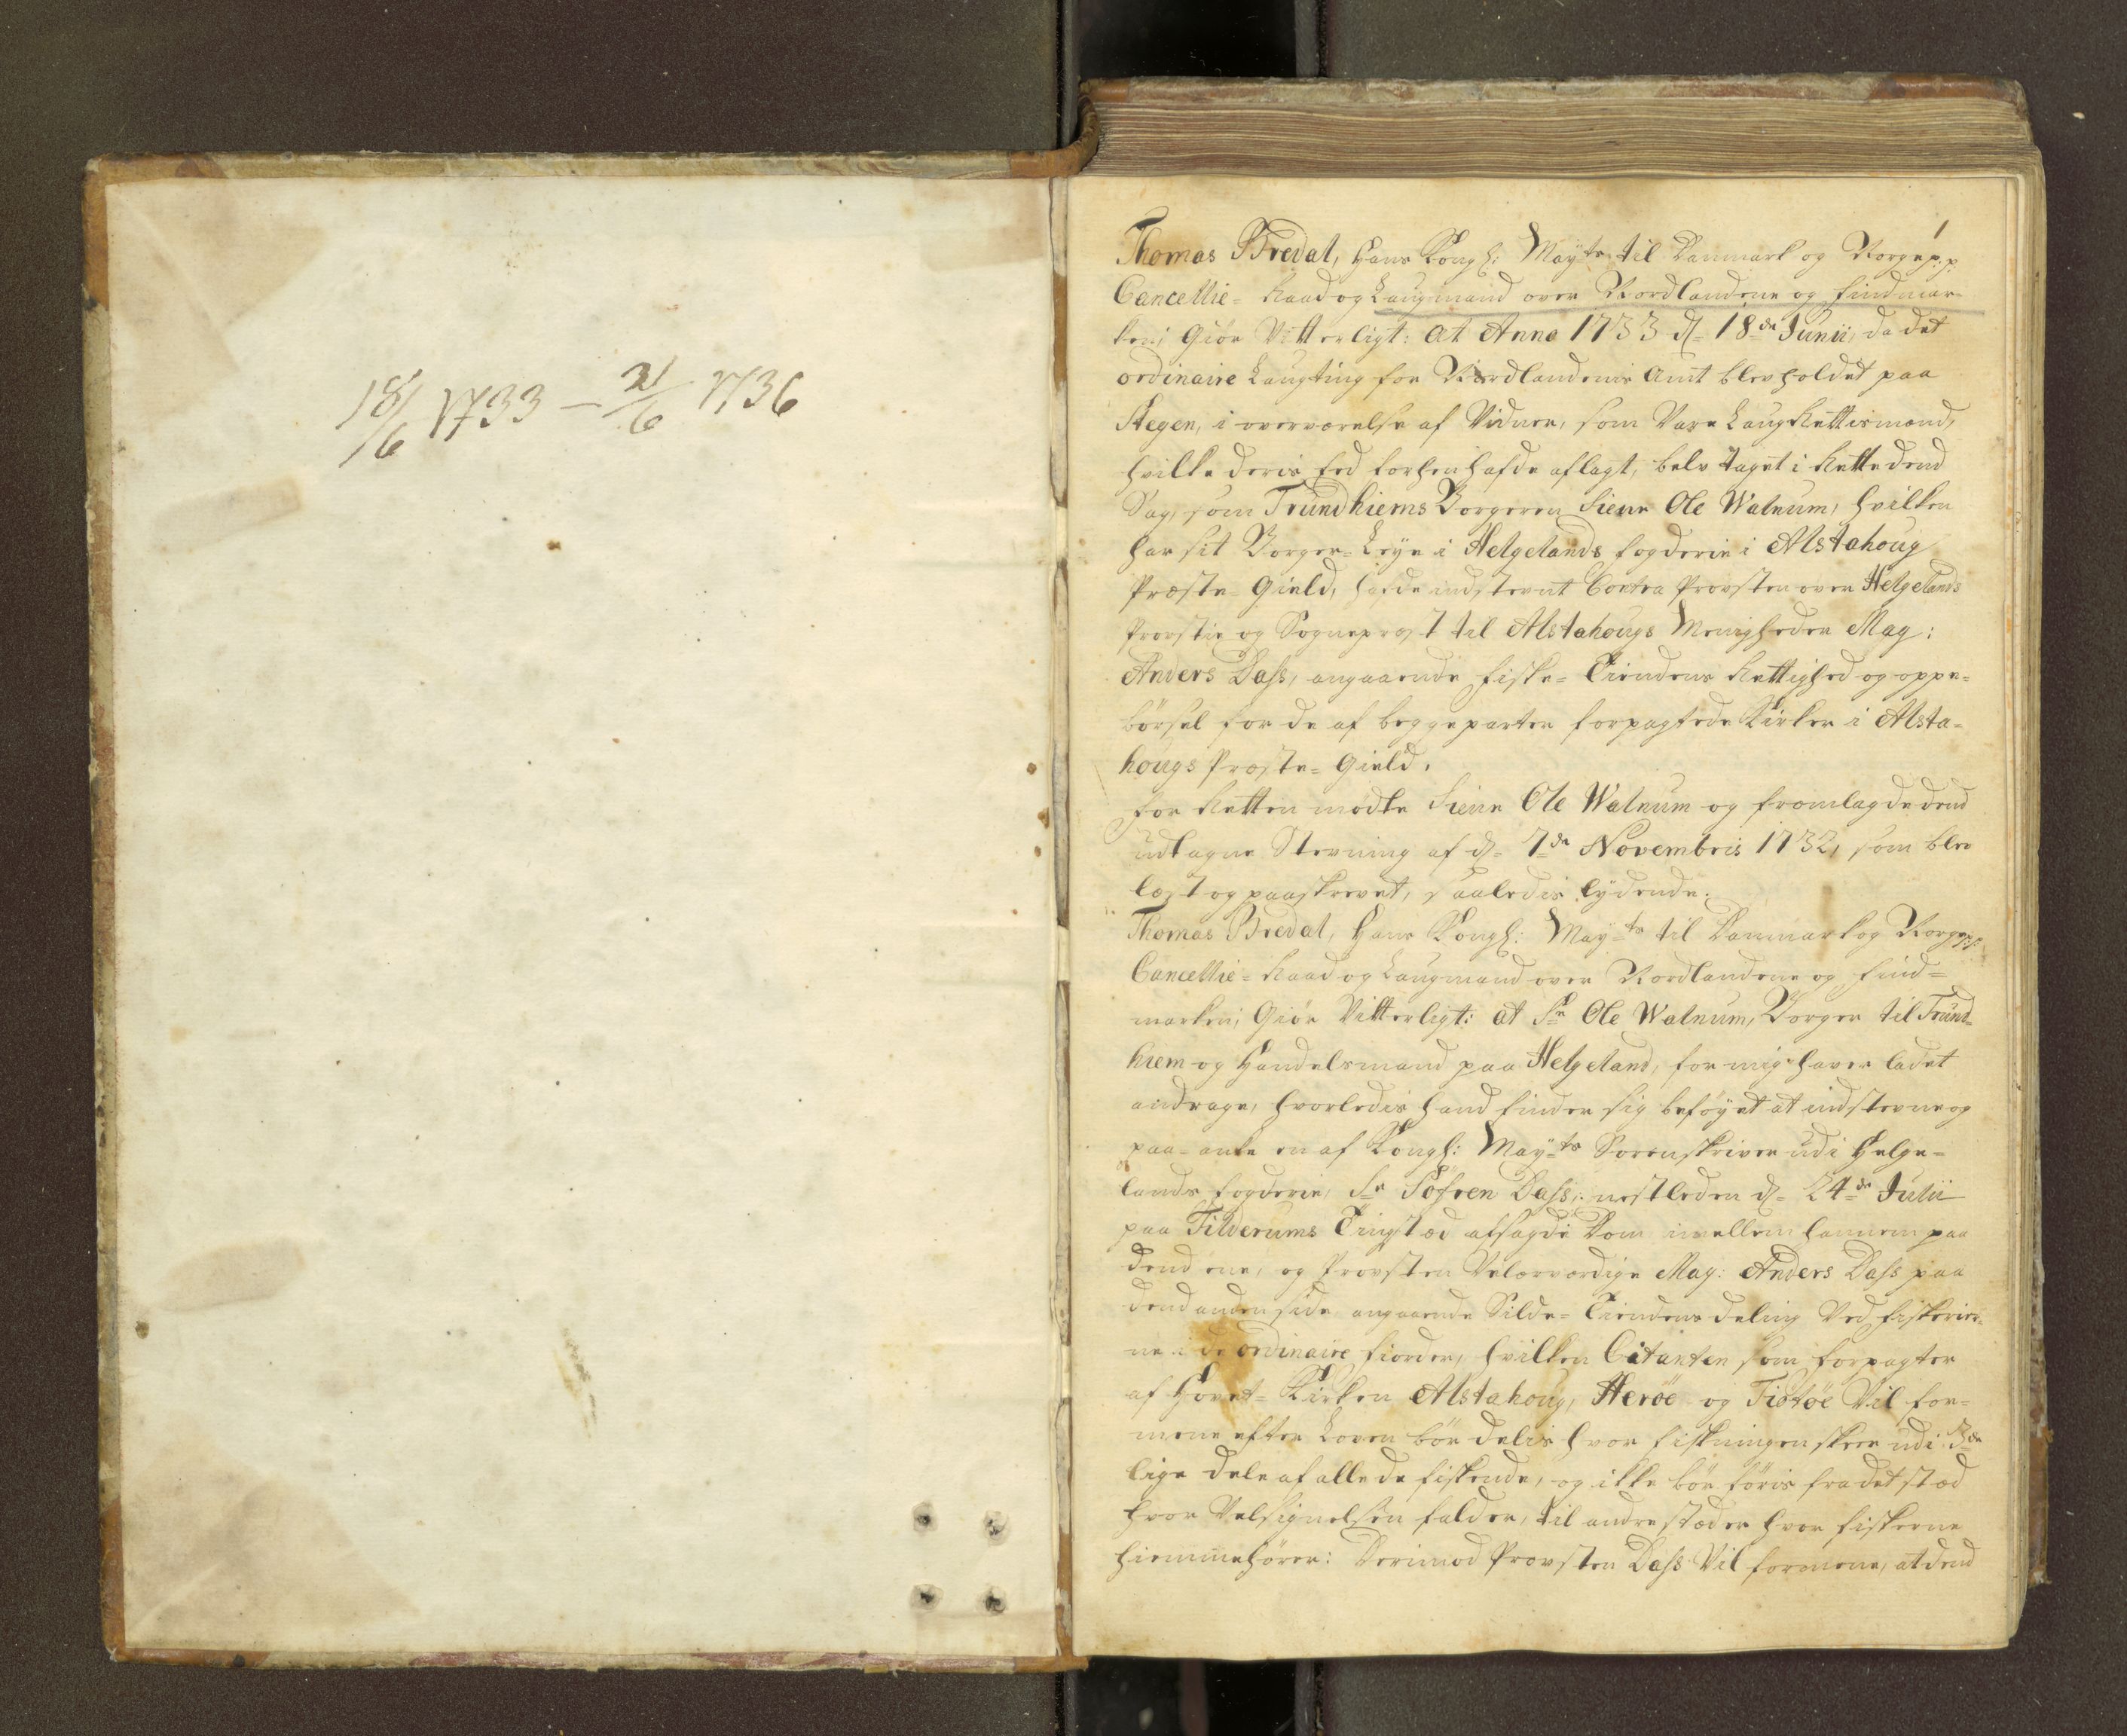 18/6 1733 – 21/6 1736
1
Thomas Bredal, Hans Kongl: Mayts til Danmark og Norge p.p.
Cancellie-Raad og Laugmand over Nordlandene og Findmar-
ken; Giör Vitterligt: at Anno 1733 d. 18de Junii, da det
ordinaire Laugting for Nordlandenis Amt blev holdet paa
Stegen, i overværelse af Vidner, som Vare Laug Rettismænd,
hvilke deris Eed forhen hafde aflagt, belv taget i Rette dend
Sag, som Trundhiems Borgeren Sieur Ole Walnum, hvilken
har sit Borger-Leye i Helgelands fogderie i Alstahoug
Præste-Gield, hafde indstevnt Contra Provsten over Helgelands
Provstie og Sognepræst til Alstahougs Menigheder Mag:
Anders Dass, angaaende fiske-Tiendens Rettighed og oppe-
börsel for de af begge parter forpagtede Kirker i Alsta-
hougs Præste-Gield.
for Retten mödte Sieur Ole Walnum og fremlagde dend
udtagne Stevning af d. 7de Novembris 1732, som blev
læst og paaskrevet, saaledis lydende:
Thomas Bredal, Hans Kongl: Mayts til Danmark og Norge p.p.
Cancellie-Raad og Laugmand over Nordlandene og find-
marken; Giör Vitterligt: at Sr Ole Walnum, Borger til Trund-
hiem og Handelsmand paa Helgeland, for mig haver ladet
andrage, hvorledis hand finder sig beföyet at indstevne og
paa-anke en af Kongl: Mayts Sorenskriver udi Helge-
lands fogderie, Sr Söfren Dass, nestleden d. 24de Julii
paa Tilderums Tingstæd afsagde Dom imellem hannem paa
dend ene, og Provsten Velærværdige Mag: Anders Dass paa
dend anden side angaaende Silde-Tiendens deling Ved fiskerier-
ne i de ordinaire fiorder, hvilken Citanten som forpagter
af Hovet-Kirken Alstahoug, Heröe og Tiötöe Vil for-
mene efter Loven bör delis hvor fiskningen skeer udi 3de
lige dele af alle de fiskende, og ikke bör föris fra det stæd
hvor Velsignelsen falder, til andre stæder hvor fiskerne
hiemmehörer: Derimod Provsten Dass Vil formene, at dend